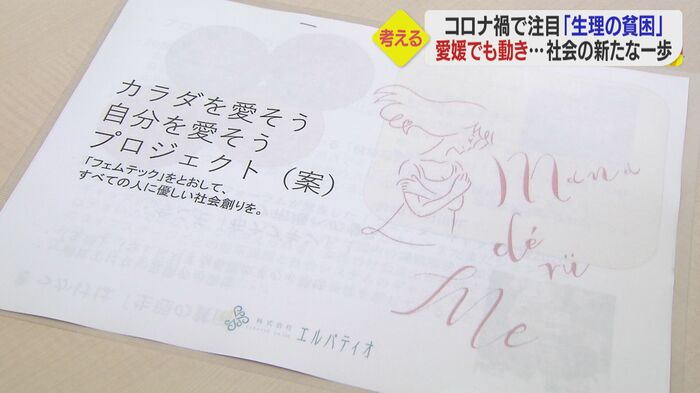 考える
コロナ禍で注目「生理の貧困」
愛媛でも動き…社会の新たな一歩
カラダを愛そう
自分を愛そう
プロジェクト（案）
「フェムテック」をとおして、
すべての人に優しい社会創りを。
Mana
dé
rü
Me
株式会社
エルパティオ